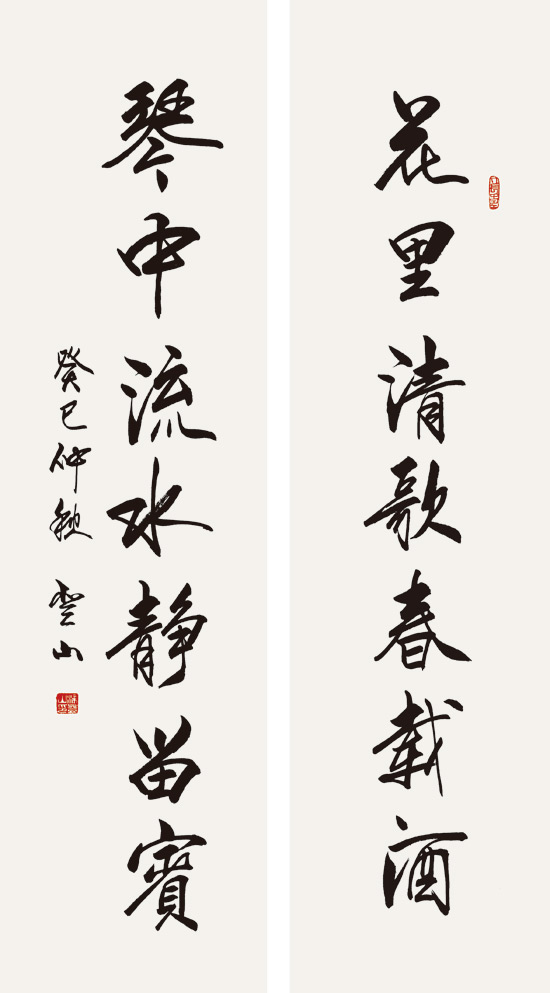 花里清歌春载酒
琴中流水静留賓
癸巳仲秋 雲山